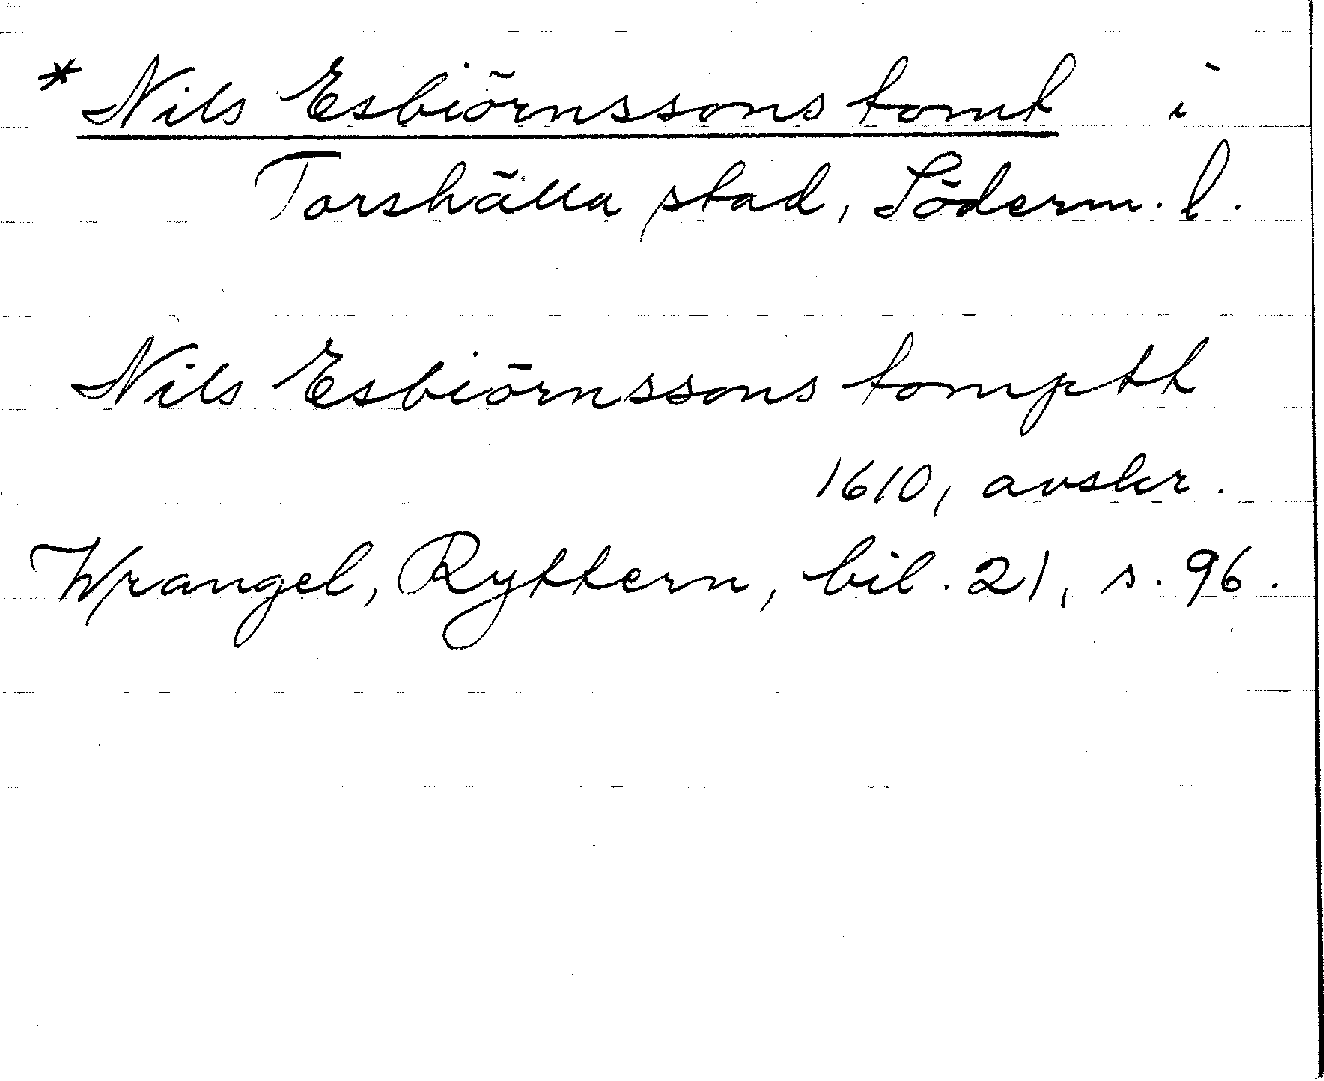 * Nils Esbiörnssons tomt i
Torshälla stad, Söderm. l.
Nils Esbiörnssons tomptt
1610, avskr.
Wrangel, Ryttern, bil. 21, s. 96.